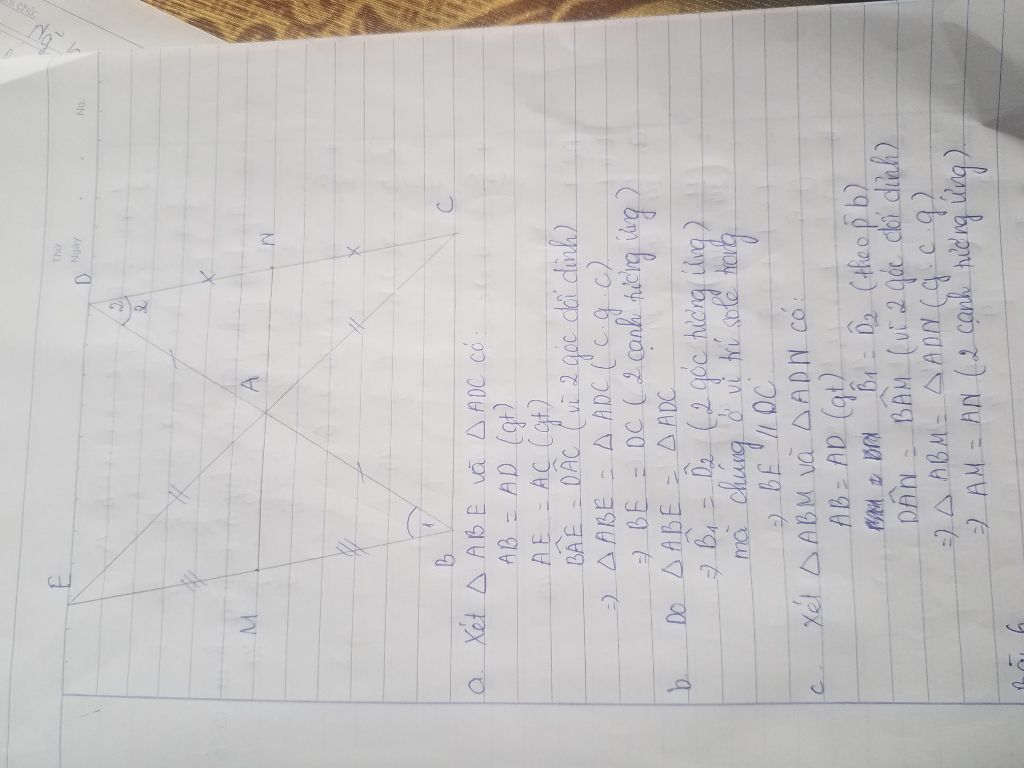 Thứ
Ngày
No.
E
D
2
2
M
A
N
B
1
C
a. Xét △ ABE và △ ADC có:
AB = AD (gt)
AE = AC (gt)
BÂE = DÂC (vì 2 góc đối đỉnh)
=> △ ABE = △ ADC (c.g.c)
=> BE = DC (2 cạnh tương ứng)
b Do △ ABE = △ ADC
=> B̂1 = D̂2 (2 góc tương ứng)
mà chúng ở vị trí sole trong
=> BE // DC
c. Xét △ ABM và △ ADN có:
AB = AD (gt)
B̂1 = D̂2 (theo p b)
DÂN = BÂM (vì 2 góc đối đỉnh)
=> △ ABM = △ ADN (g.c.g)
=> AM = AN (2 cạnh tương ứng)
Bài 6